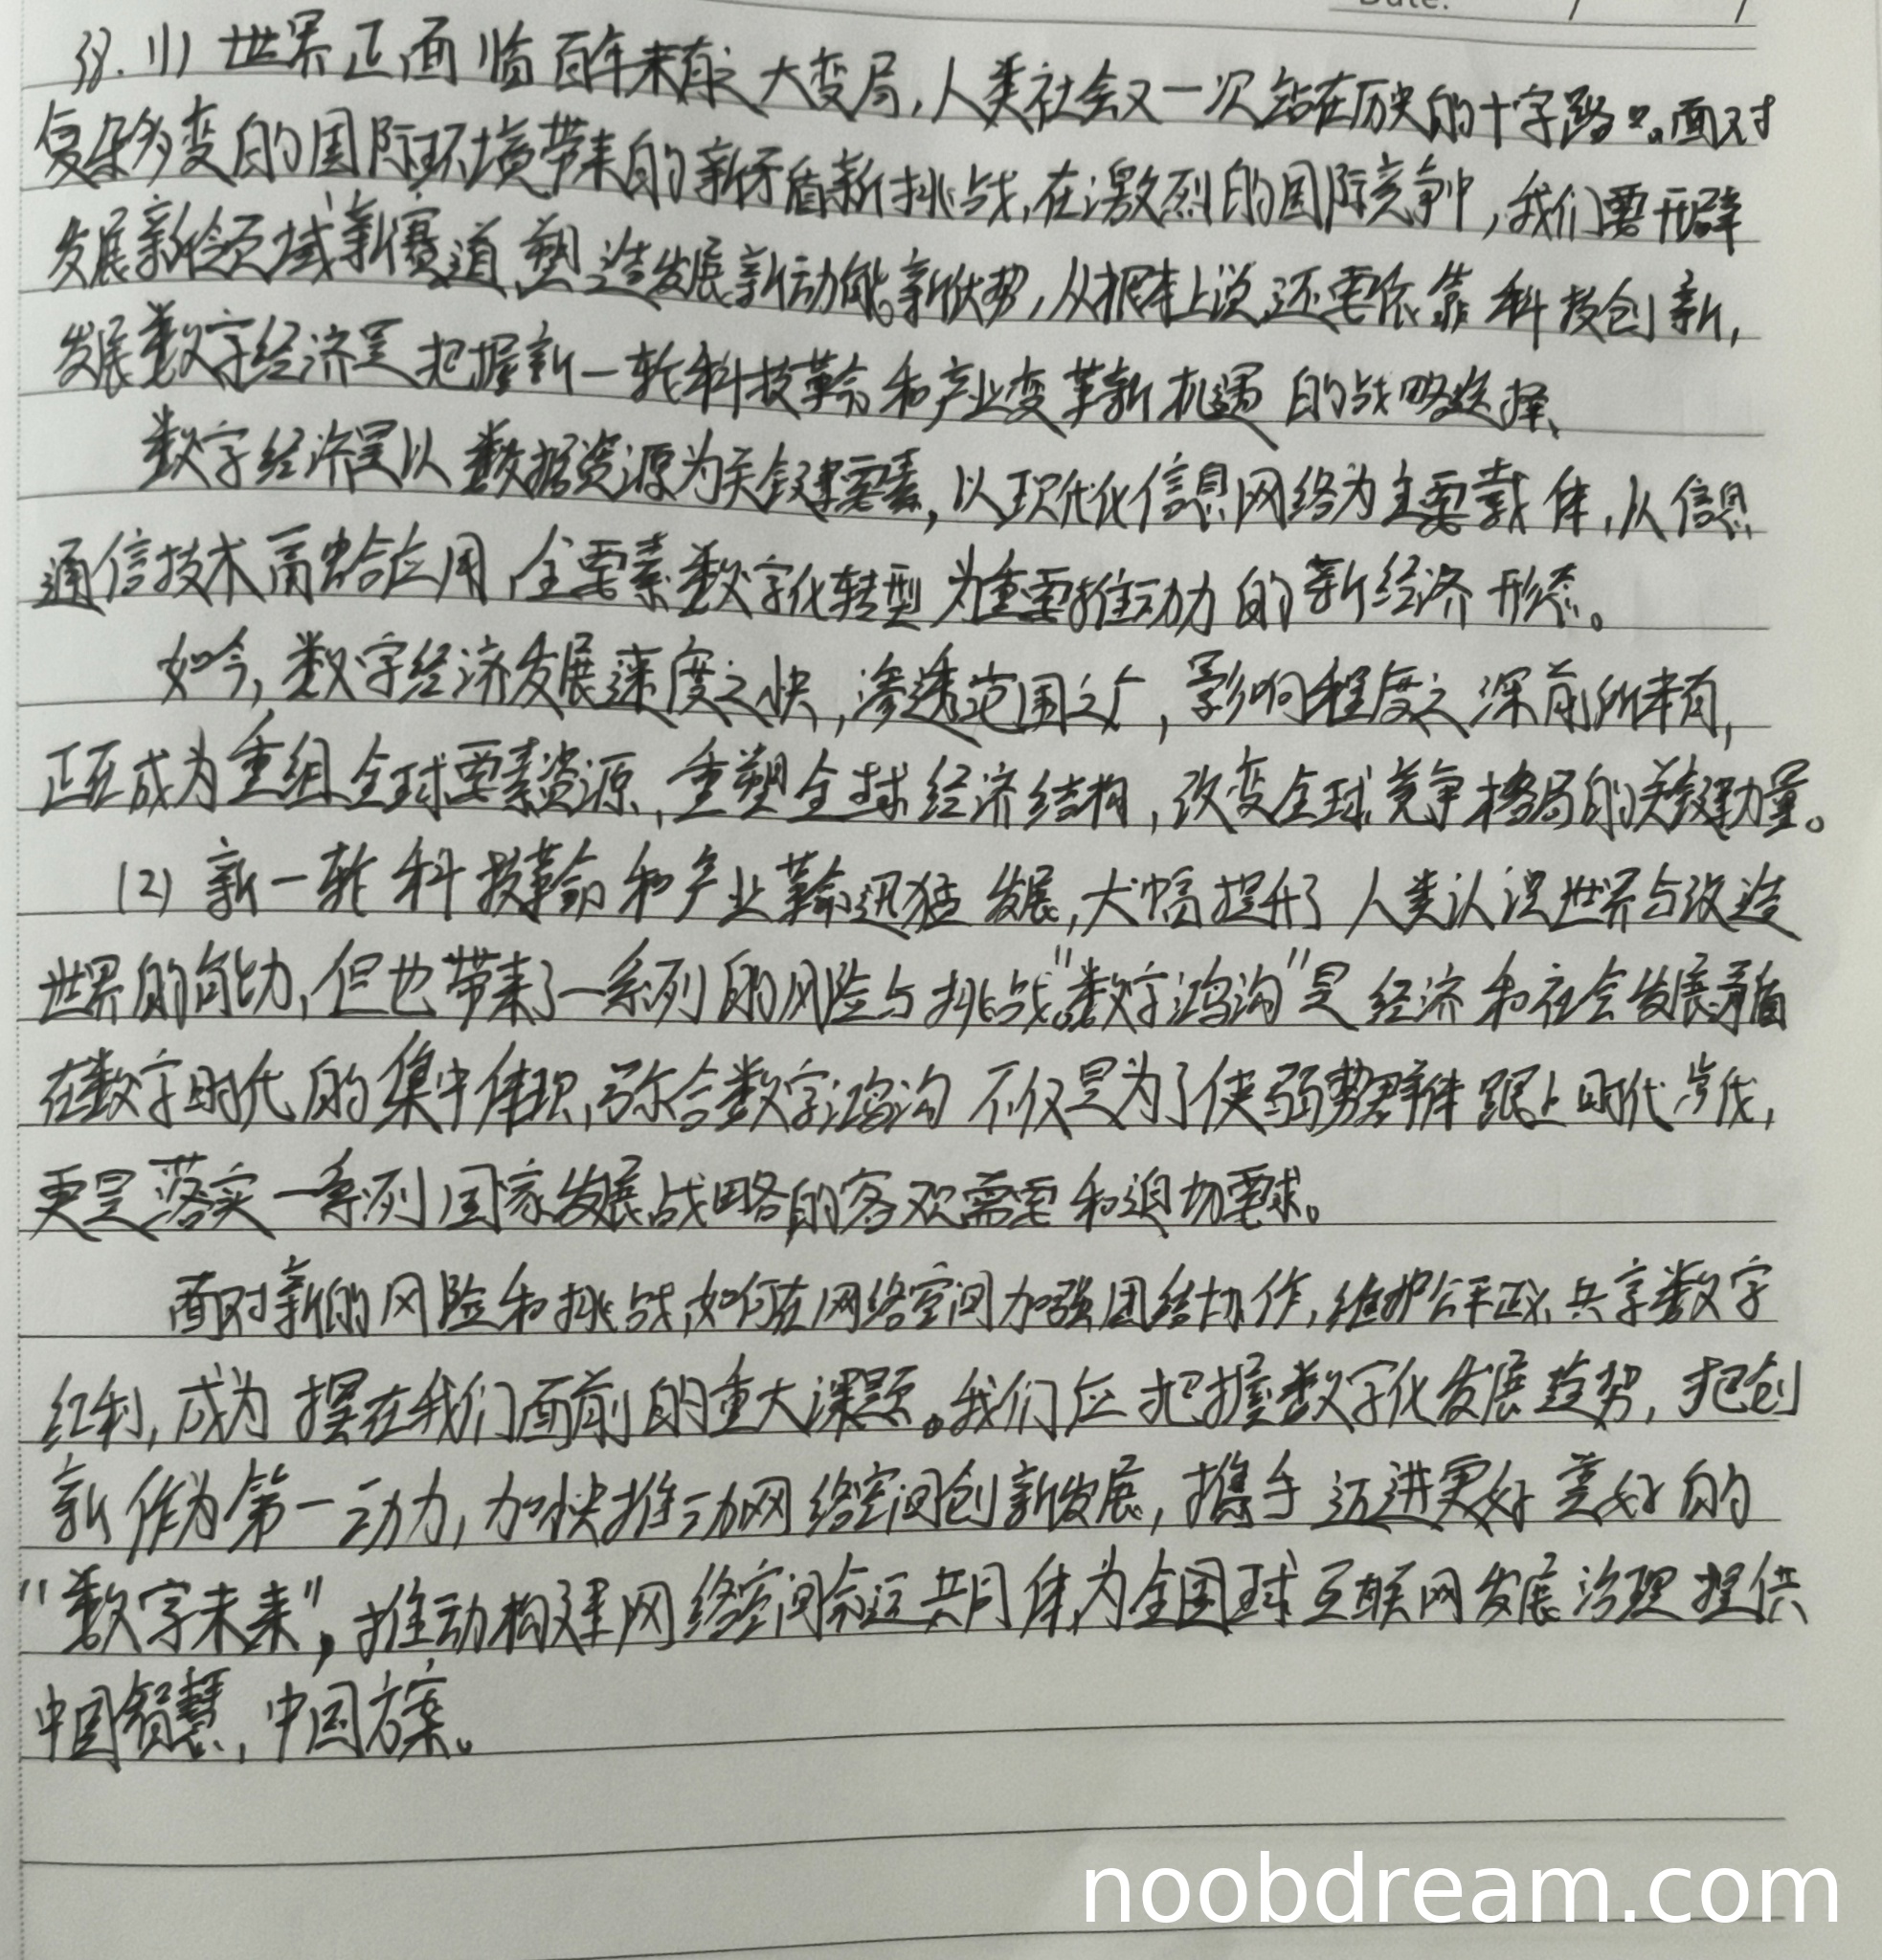 Date: / /
38. (1) 世界正面临百年未有之大变局,人类社会又一次站在历史的十字路口。面对
复杂多变的国际环境带来的新矛盾新挑战,在激烈的国际竞争中,我们要开辟
发展新领域新赛道,塑造发展新动能新优势,从根本上说,还要依靠科技创新,
发展数字经济是把握新一轮科技革命和产业变革新机遇的战略选择、
数字经济是以数据资源为关键要素,以现代化信息网络为主要载体,从信息
通信技术融合应用,全要素数字化转型为重要推动力的新经济形态。
如今,数字经济发展速度之快,渗透范围之广,影响程度之深前所未有,
正在成为重组全球要素资源,重塑全球经济结构,改变全球竞争格局的关键力量。
(2) 新一轮科技革命和产业革命迅猛发展,大幅提升了人类认识世界与改造
世界的能力,但也带来了一系列的风险与挑战。"数字鸿沟"是经济和社会发展矛盾
在数字时代的集中体现,弥合数字鸿沟不仅是为了使弱势群体跟上时代步伐,
更是落实一系列国家发展战略的客观需要和迫切要求。
面对新的风险和挑战,如何在网络空间加强团结协作,维护公平正义,共享数字
红利,成为摆在我们面前的重大课题。我们应把握数字化发展趋势,把创
新作为第一动力,加快推动网络空间创新发展,携手迈进更好美好的
"数字未来",推动构建网络空间命运共同体,为全国球互联网发展治理提供
中国智慧,中国方案。
noobdream.com